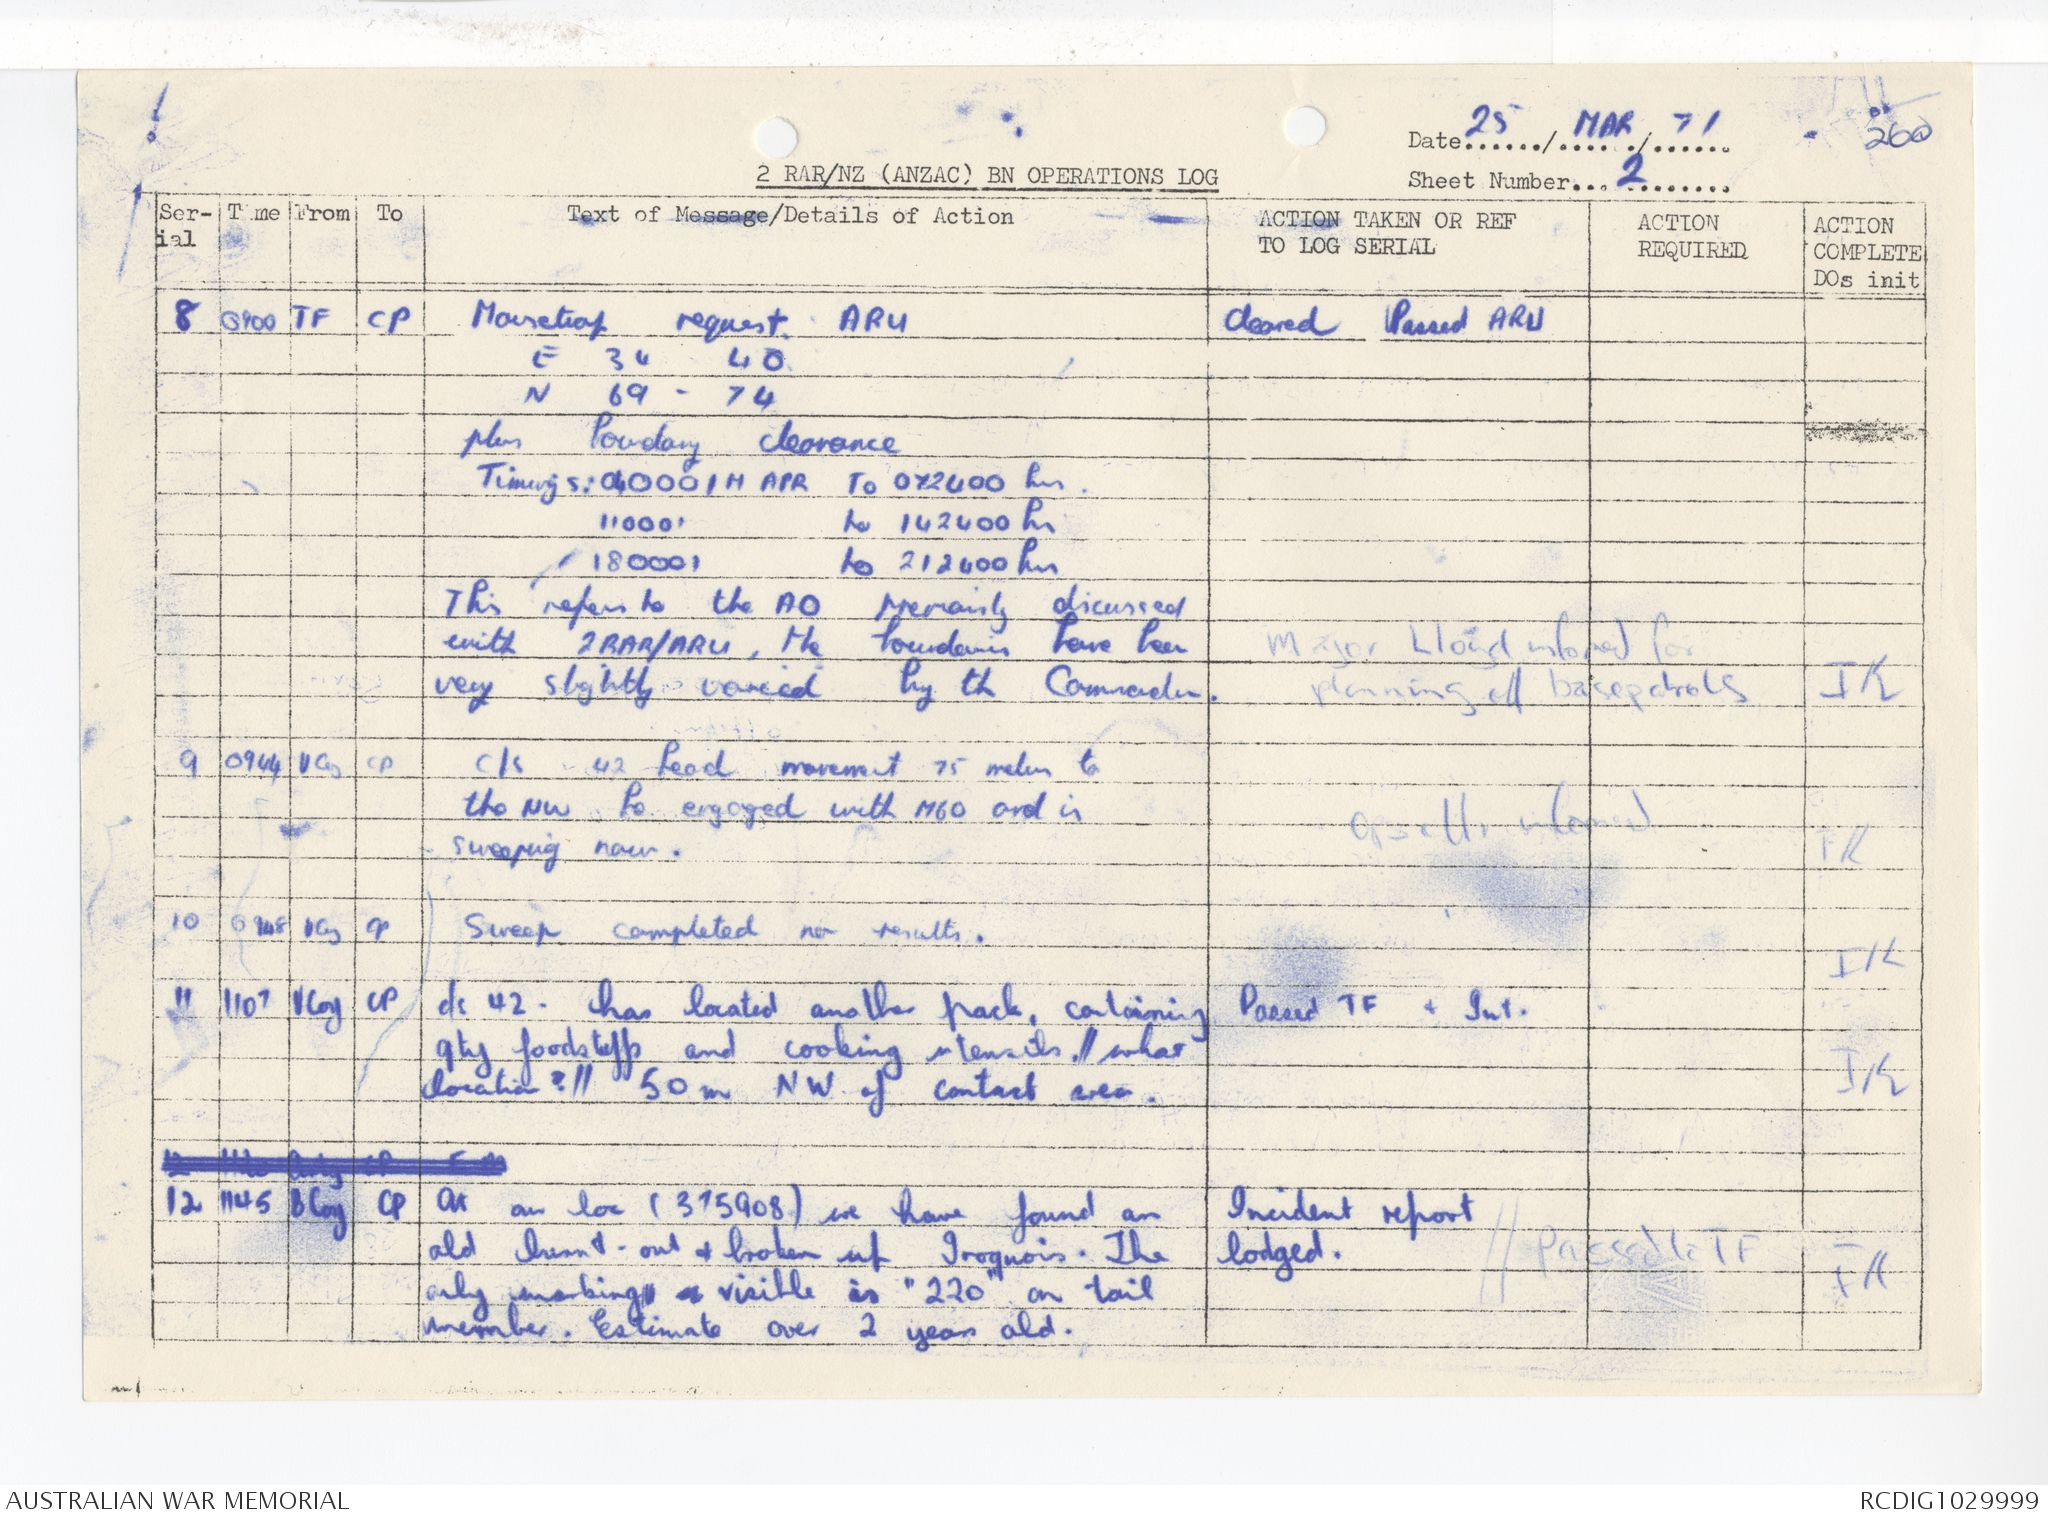 Date 25 / MAR / 71
260
2 RAR/NZ (ANZAC) BN OPERATIONS LOG
Sheet Number 2
Ser-ial Time From To Text of Message/Details of Action ACTION TAKEN OR REF TO LOG SERIAL ACTION REQUIRED ACTION COMPLETE DOs init
8 0900 TF CP Mousetrap request. ARU Cleared Passed ARU
E 34 40
N 69 - 74
plus boundary clearance
Timings: 040001H APR To 072400 hrs.
110001 to 142400 hrs
180001 to 212400 hrs
This refers to the AO previously discussed
with 2RAR/ARU, the boundaries have been Major Lloyd informed for
very slightly varied by th Commander. planning of basepatrols IK
9 0944 V Coy CP c/s 42 head movement 75 metres to
the NW he engaged with M60 and is informed
sweeping now. IK
10 0948 V Coy CP Sweep completed no results. IK
11 1107 V Coy CP c/s 42 - has located another pack, containing Passed TF + Int.
qty foodstuffs and cooking utensils.// what
location?// 50m NW of contact area. IK
12 1145 B Coy CP At our loc (375908) we have found an Incident report
old burnt-out & broken up Iroquois. The lodged. // Passed to TF
only marking visible is "220" on tail IK
member. Estimate over 2 years old.
AUSTRALIAN WAR MEMORIAL
RCDIG1029999